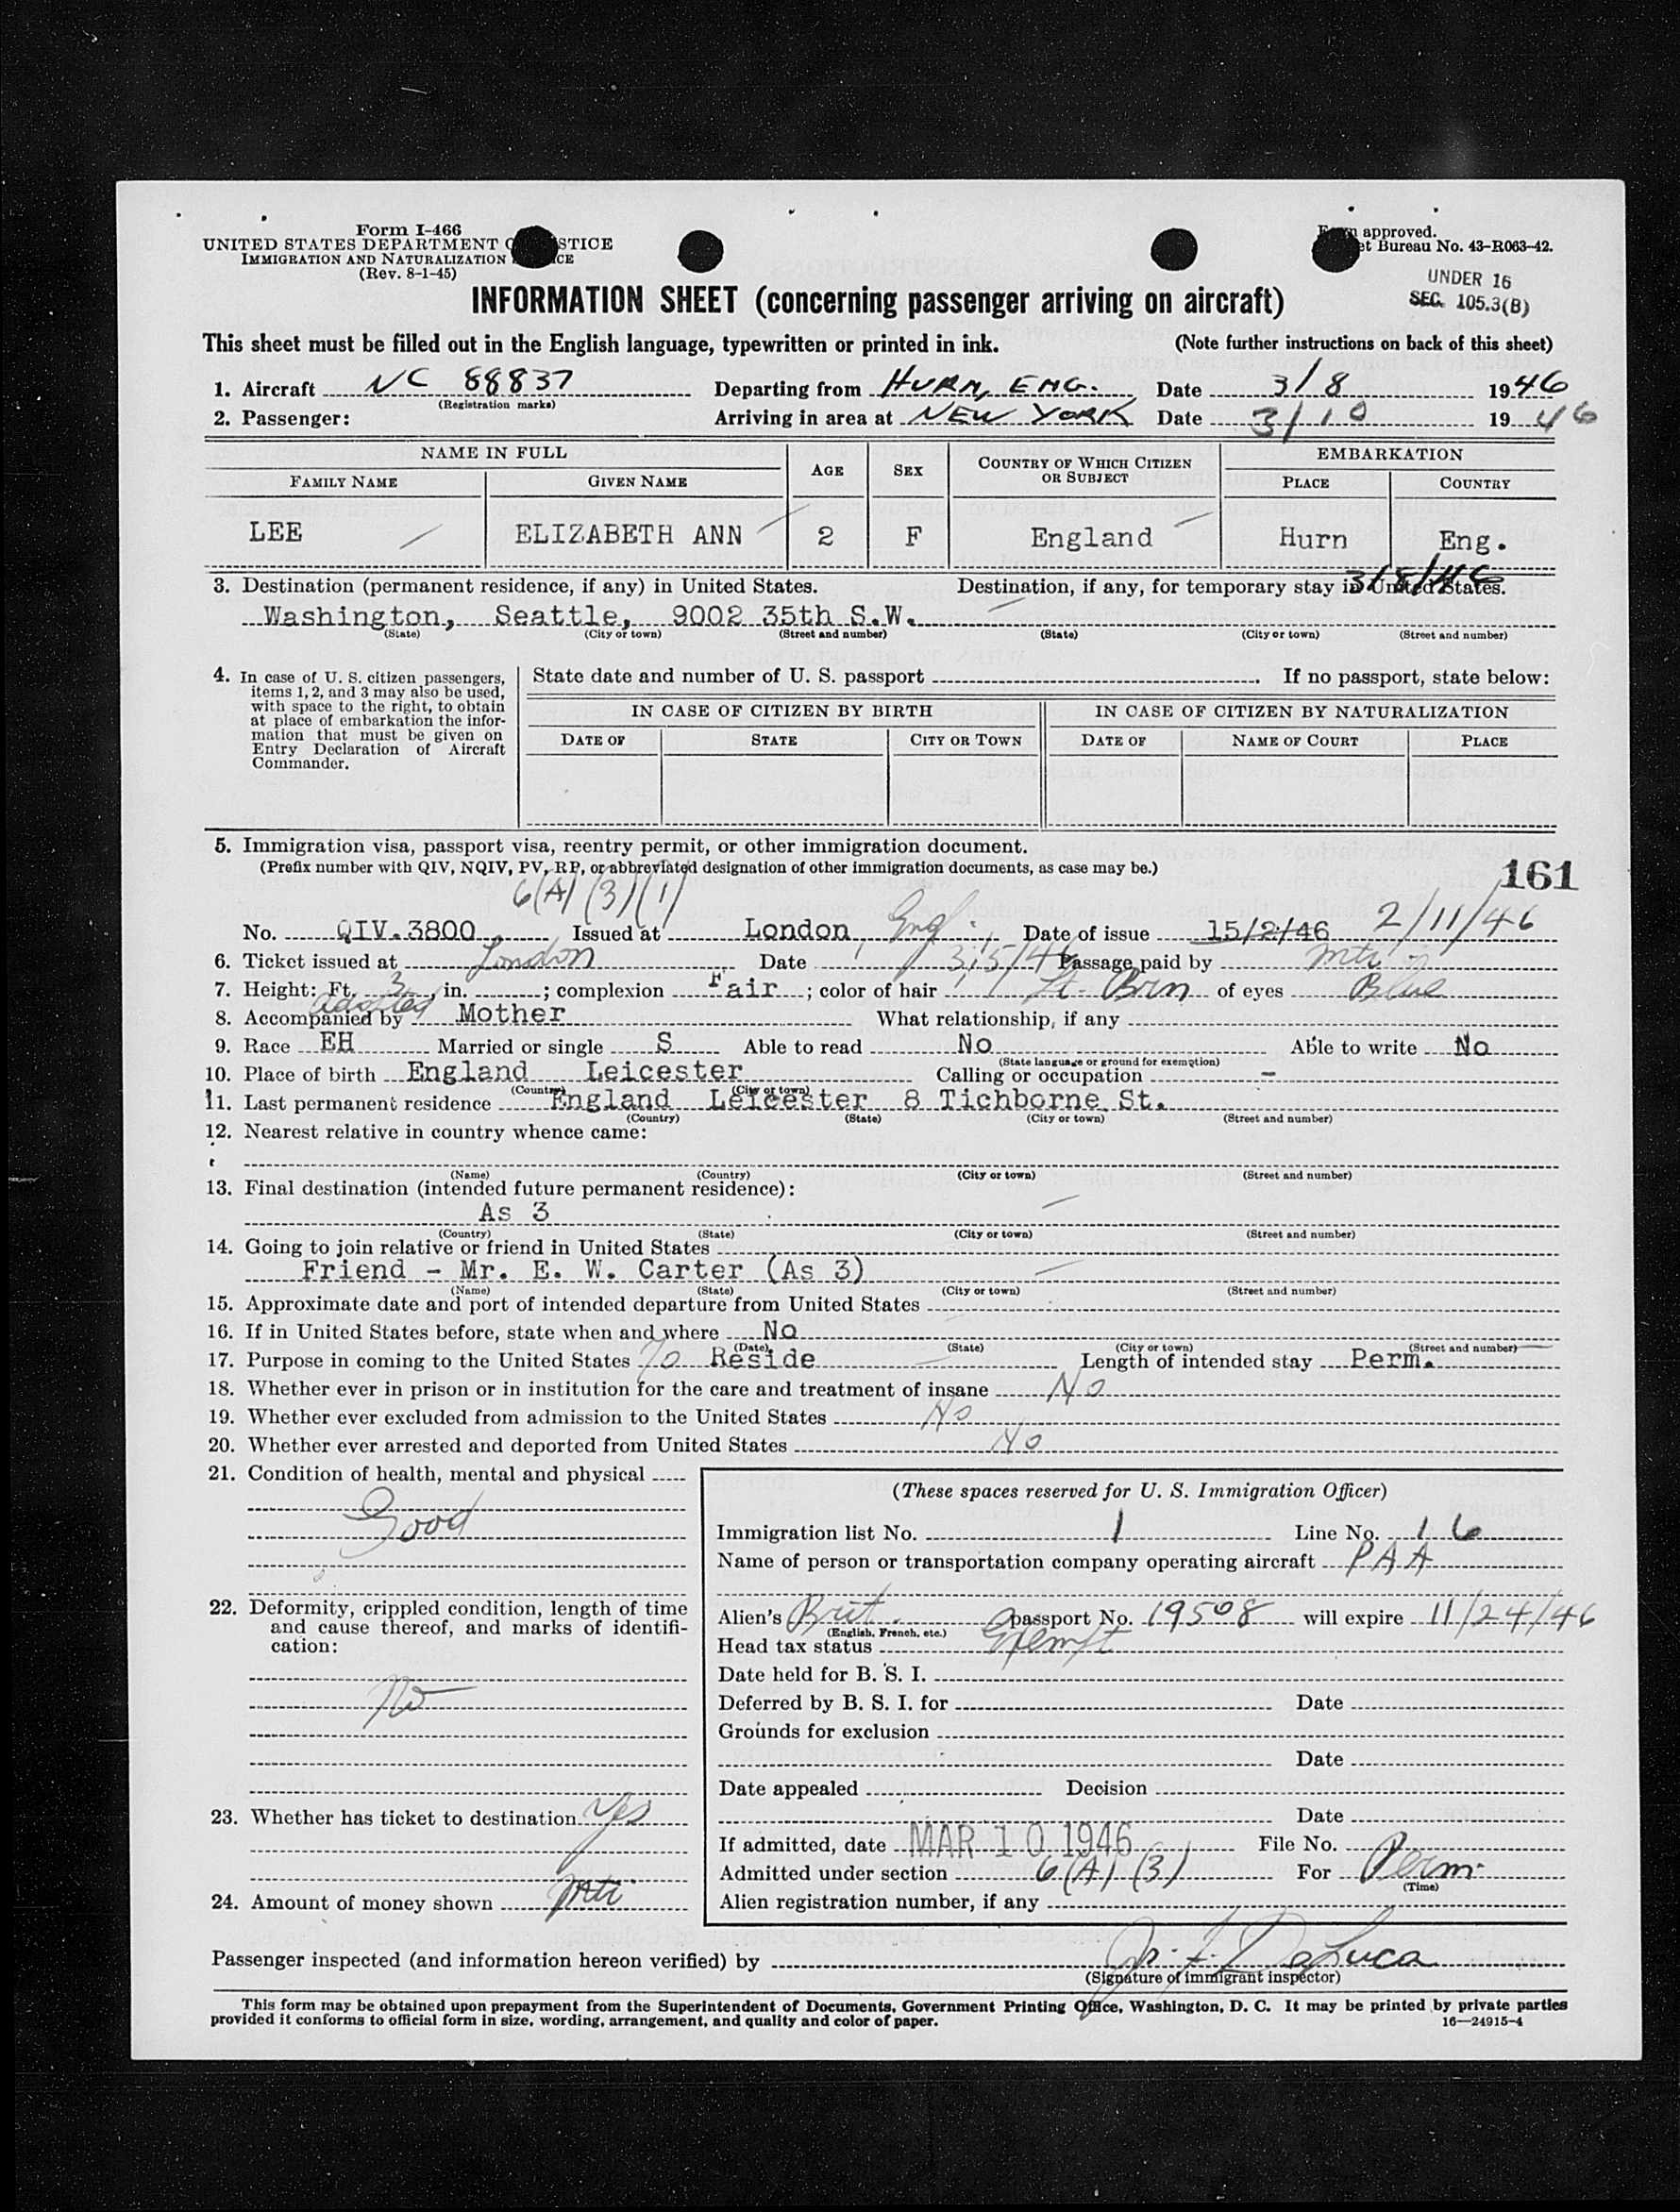 Form I-466
UNITED STATES DEPARTMENT OF JUSTICE
IMMIGRATION AND NATURALIZATION SERVICE
(Rev. 8-1-45)
Form approved.
Budget Bureau No. 43-R063-42.
UNDER 16
SEC. 105.3(B)
INFORMATION SHEET (concerning passenger arriving on aircraft)
This sheet must be filled out in the English language, typewritten or printed in ink. (Note further instructions on back of this sheet)
1. Aircraft NC 88837 Departing from HURN, ENG. Date 3/8 1946
(Registration marks)
2. Passenger: Arriving in area at NEW YORK Date 3/10 1946
NAME IN FULL AGE SEX COUNTRY OF WHICH CITIZEN OR SUBJECT EMBARKATION
FAMILY NAME GIVEN NAME PLACE COUNTRY
LEE ELIZABETH ANN 2 F England Hurn Eng.
3/8/46
3. Destination (permanent residence, if any) in United States. Destination, if any, for temporary stay in United States.
Washington, Seattle, 9002 35th S.W.
(State) (City or town) (Street and number) (State) (City or town) (Street and number)
4. In case of U. S. citizen passengers, items 1, 2, and 3 may also be used, with space to the right, to obtain at place of embarkation the information that must be given on Entry Declaration of Aircraft Commander.
State date and number of U. S. passport . If no passport, state below:
IN CASE OF CITIZEN BY BIRTH IN CASE OF CITIZEN BY NATURALIZATION
DATE OF STATE CITY OR TOWN DATE OF NAME OF COURT PLACE
5. Immigration visa, passport visa, reentry permit, or other immigration document.
(Prefix number with QIV, NQIV, PV, RP, or abbreviated designation of other immigration documents, as case may be.) 161
6(A)(3)(1)
No. QIV.3800 Issued at London, Engl. Date of issue 15/2/46 2/11/46
6. Ticket issued at London Date 3/5/46 Passage paid by
7. Height: Ft. 3, in. ; complexion Fair ; color of hair Lt. Brn of eyes Blue
adopted
8. Accompanied by Mother What relationship, if any
9. Race EH Married or single S Able to read No Able to write No
(State language or ground for exemption)
10. Place of birth England Leicester Calling or occupation -
(Country) (City or town)
11. Last permanent residence England Leicester 8 Tichborne St.
(Country) (State) (City or town) (Street and number)
12. Nearest relative in country whence came:
(Name) (Country) (City or town) (Street and number)
13. Final destination (intended future permanent residence):
As 3
(Country) (State) (City or town) (Street and number)
14. Going to join relative or friend in United States
Friend - Mr. E. W. Carter (As 3)
(Name) (State) (City or town) (Street and number)
15. Approximate date and port of intended departure from United States
16. If in United States before, state when and where No
(Date) (State) (City or town) (Street and number)
17. Purpose in coming to the United States To Reside Length of intended stay Perm.
18. Whether ever in prison or in institution for the care and treatment of insane No
19. Whether ever excluded from admission to the United States No
20. Whether ever arrested and deported from United States No
21. Condition of health, mental and physical
Good
22. Deformity, crippled condition, length of time and cause thereof, and marks of identification:
No
23. Whether has ticket to destination Yes
24. Amount of money shown
(These spaces reserved for U. S. Immigration Officer)
Immigration list No. 1 Line No. 16
Name of person or transportation company operating aircraft PAA
Alien's Brit. passport No. 19508 will expire 11/24/46
(English, French, etc.)
Head tax status Exempt
Date held for B. S. I.
Deferred by B. S. I. for Date
Grounds for exclusion
Date
Date appealed Decision
Date
If admitted, date MAR 10 1946 File No.
Admitted under section 6(A)(3) For Perm.
(Time)
Alien registration number, if any
Passenger inspected (and information hereon verified) by DeLuca
(Signature of immigrant inspector)
This form may be obtained upon prepayment from the Superintendent of Documents, Government Printing Office, Washington, D. C. It may be printed by private parties
provided it conforms to official form in size, wording, arrangement, and quality and color of paper. 16—24915-4